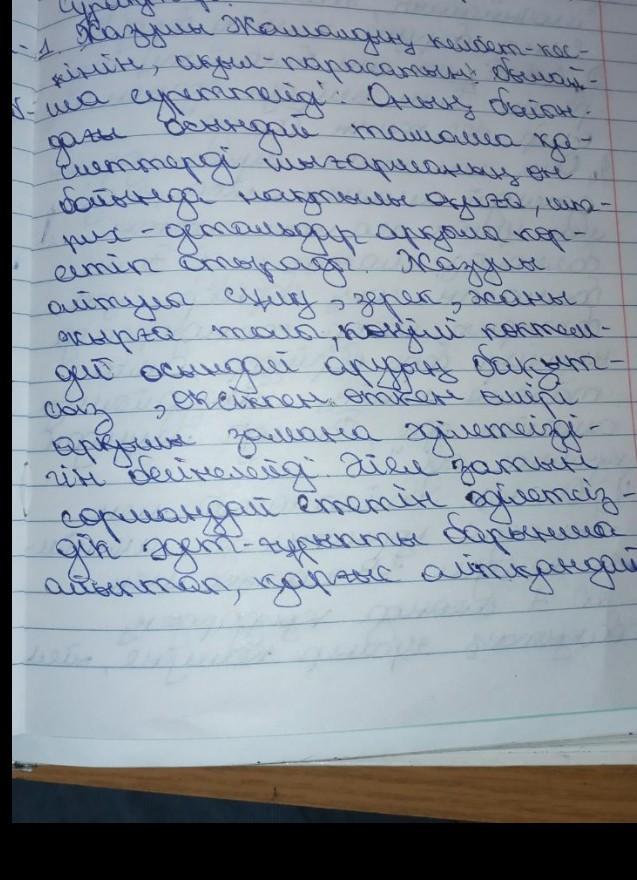 1. Жазушы Жамалдың келбет-кес-
кінін, ақыл-парасатын былай-
ша суреттейді. Оның бойын-
дағы осындай тамаша қа-
сиеттерді шығарманың өн
бойында нақтылы оқиға, шт-
рих-детальдар арқылы көр-
сетіп отырады. Жазушы
айтулы сұлу, зерек, жаны
жырға толы, көңілі көктем-
дей осындай арудың бақыт-
сыз, өксікпен өткен өмірі
арқылы замана әділетсізді-
гін бейнелейді. Әйел затын
сормаңдай ететін әділетсіз-
дік әдет-ғұрыпты барынша
айыптап, қарғыс айтқандай